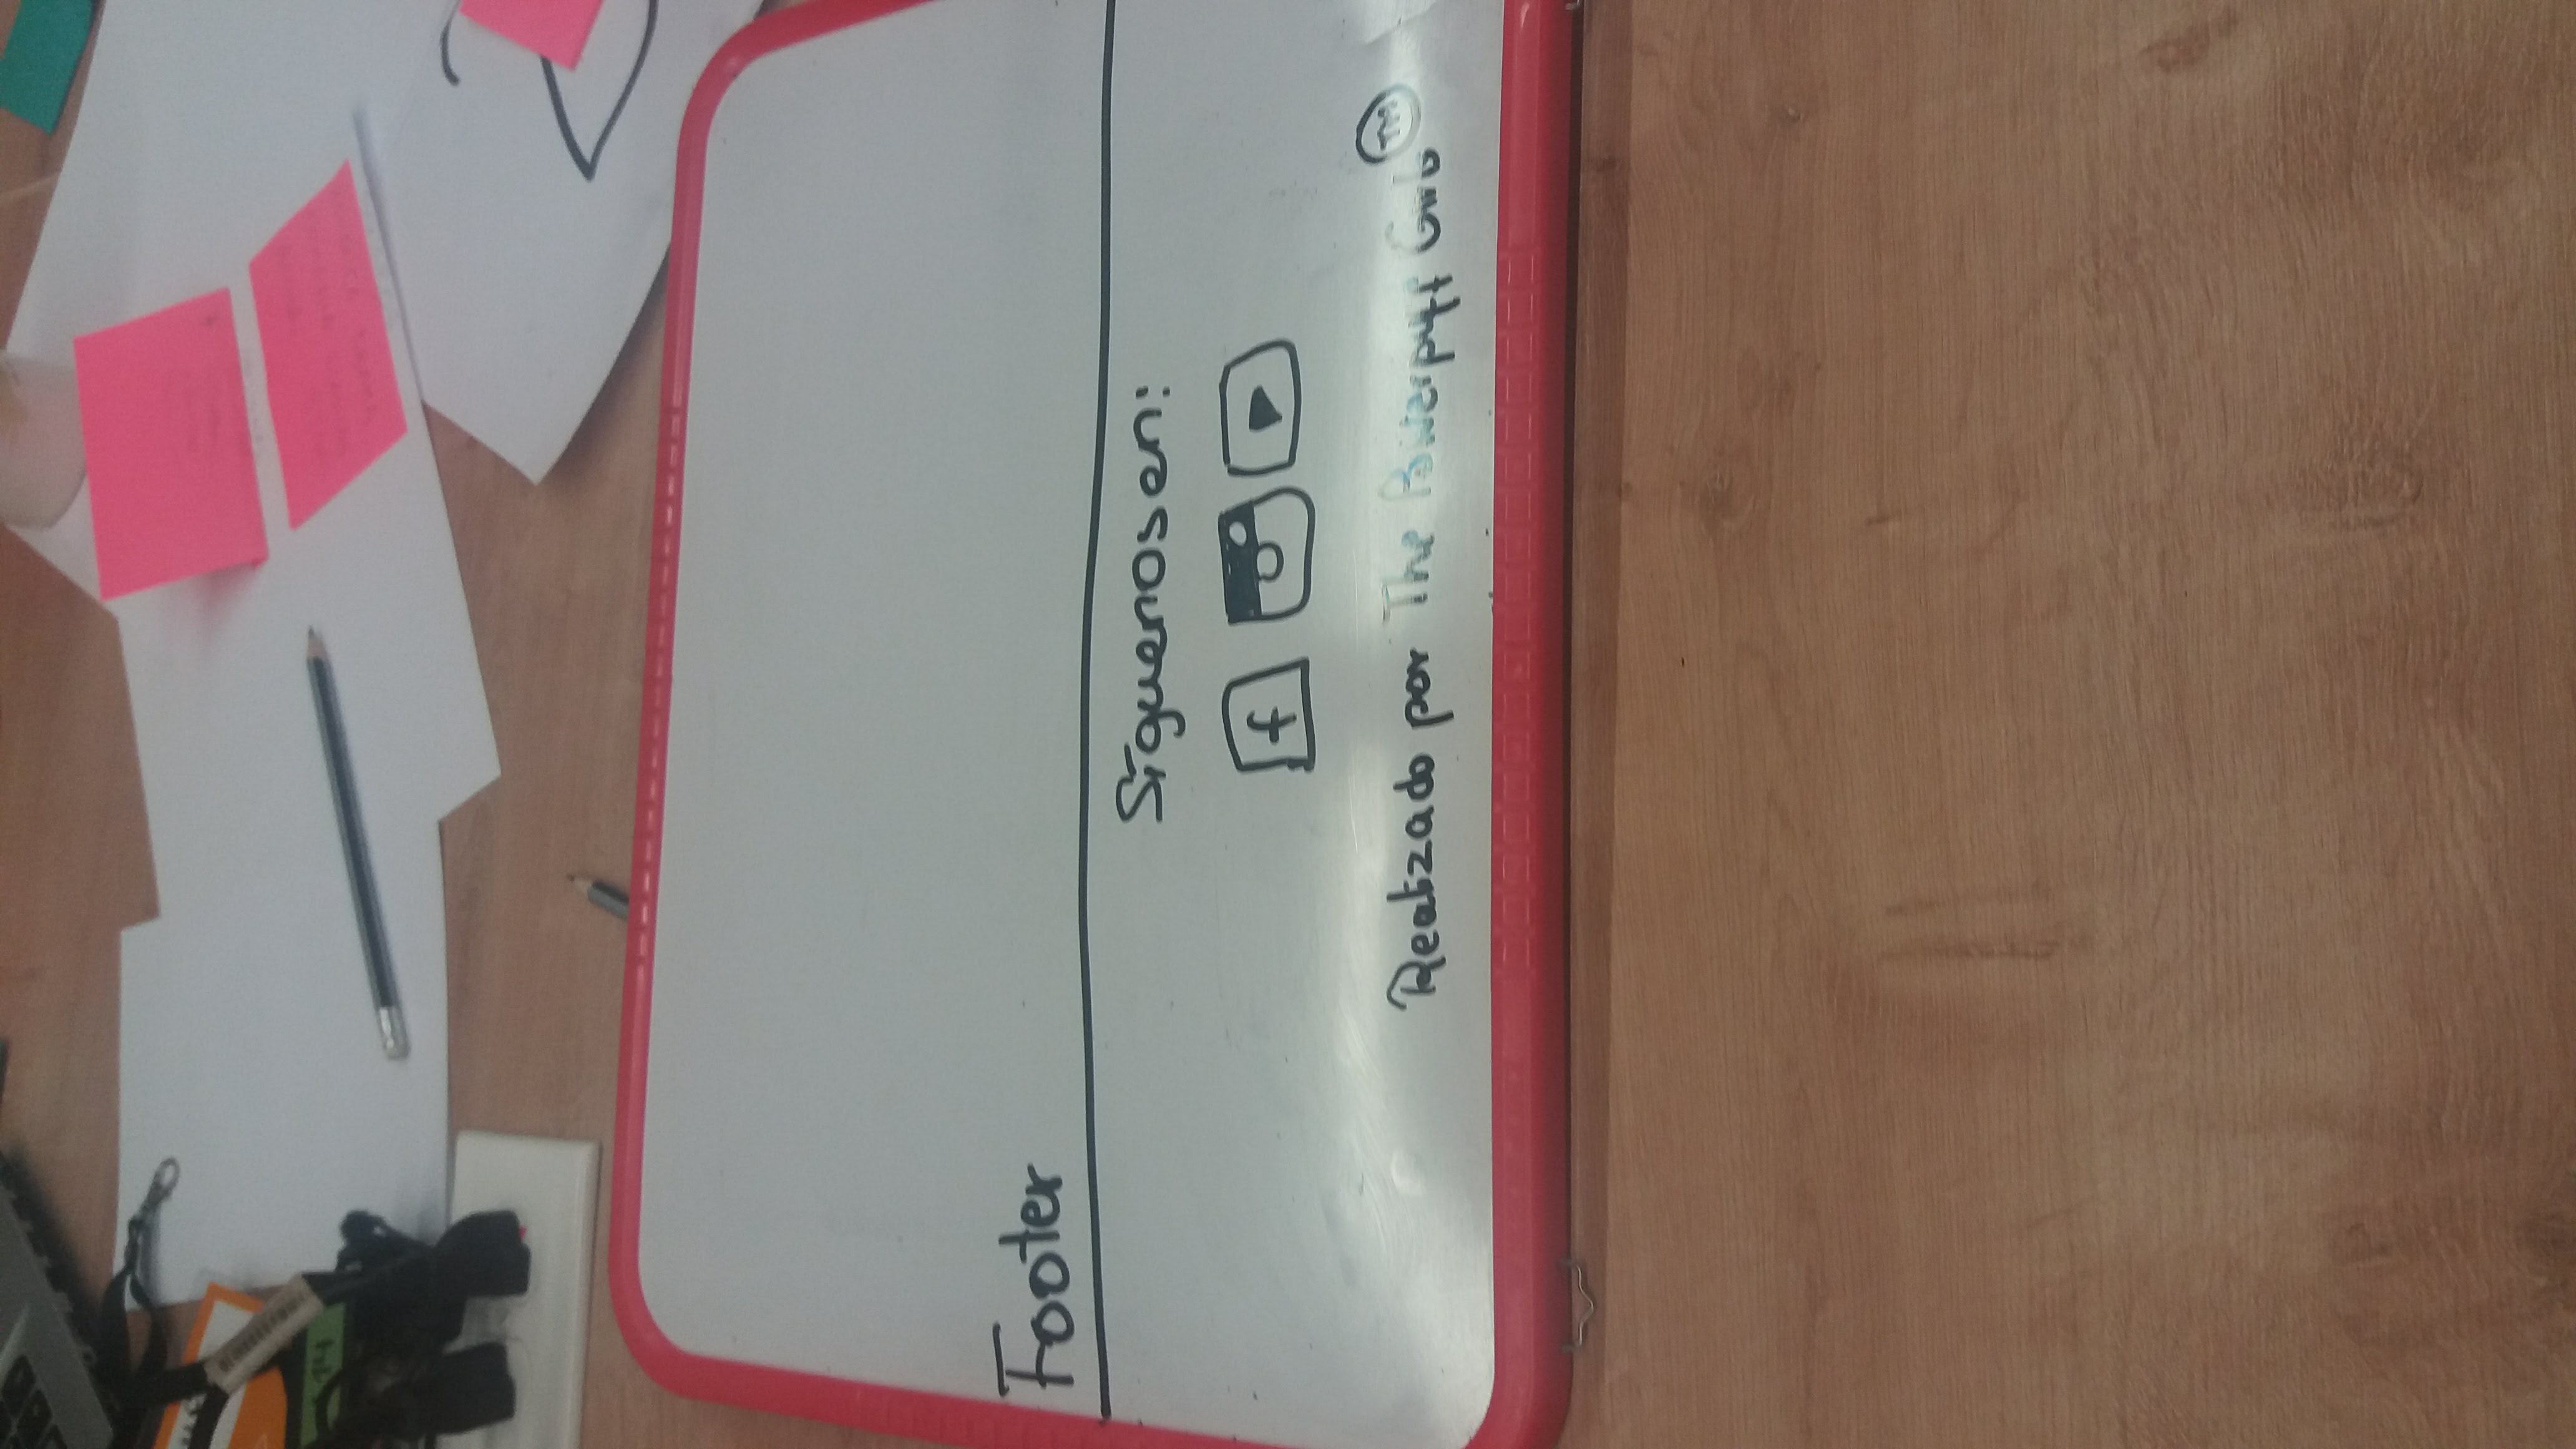 Footer
Síguenos en:
f
Realizado por The Powerpuff Girls TM